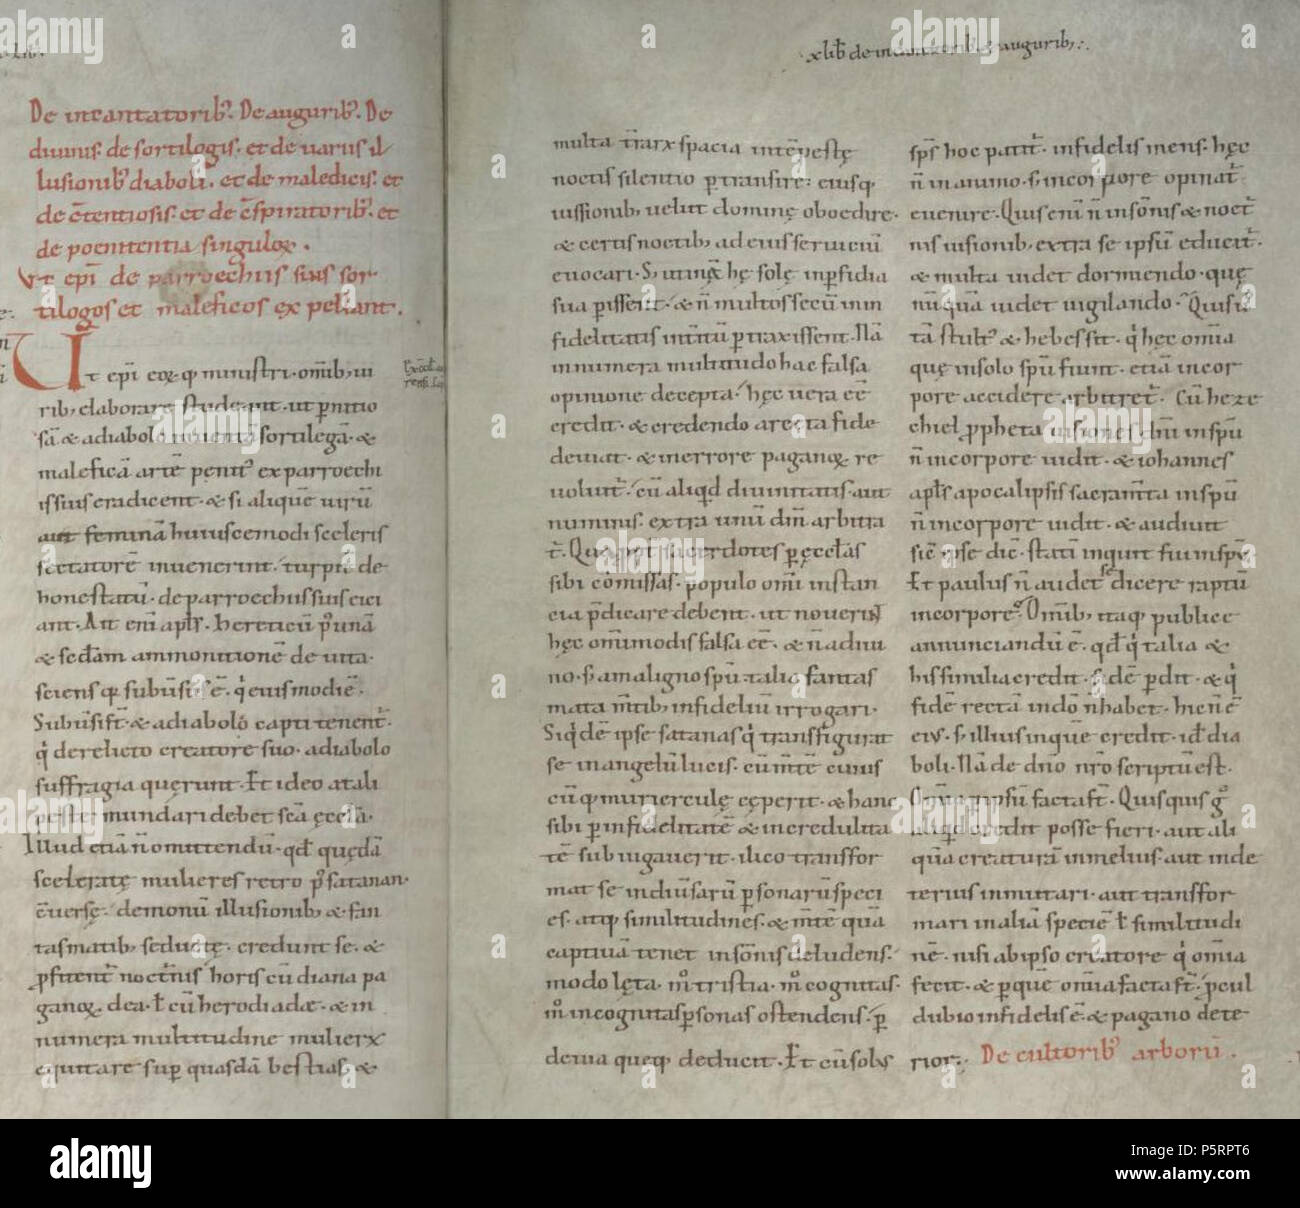 x lib̄ de incantatorib; & augurib;
De incantatoribꝰ. De auguribꝰ. De
diuinis. de sortilogis. et de uariis il
lusionibꝰ diaboli. et de maledicis. et
de c̄tentiosis. et de c̄spiratoribꝰ. et
de poenitentia singuloꝝ.
Vt ep̄i de parroechiis suis sor
tilogos et maleficos expellant.
Ut ep̄i eoꝝq; ministri. om̄ib; ui
rib; elaborare studeant. ut p̄nitio
sā & a diabolo inuentā sortilegā. &
maleficā artē penitꝰ ex parroechi
is suis eradicent. & si aliquē uirū
aut feminā huiuscemodi sceleris
sectatorē inuenerint. turpit̄ de
honestatū. de parroechiis suis eici
ant. Ait eni apl̄s. hereticū p̄ unā
& secd̄am ammonitionē de uita.
sciens q; subūsꝰ ē. q̇ eiusmodi ē.
Subūsi st̄. & a diabolo capti tenent̄.
q̇ derelicto creatore suo. a diabolo
suffragia quęrunt. Et ideo a tali
peste mundari debet sc̄a ęccl̄a.
Illud etiā n̄ omittendū. qd̄ quędā
sceleratę mulieres retro p̄ satanan
c̄uersę. demonū illusionib; & fan
tasmatib; seductę. credunt se. &
ꝓfitent̄ nocturnis horis cū diana pa
ganoꝝ dea. ł cū herodiade. & in
numera multitudine mulierꝝ
equitare suꝑ quasdā bestias. &
multa terrarꝝ spacia intēpestę
noctis silentio ꝑtransire. eiusq;
iussionib; uelut dominę oboedire.
& certis noctib; ad eius seruiciū
euocari. S; utinā hę solę in ꝑfidia
sua ꝑissent. & n̄ multos secū in in
fidelitatis intitū ꝑtraxissent. Nā
innumera multitudo hac falsa
opinione decepta. hęc uera eē
credit. & credendo a recta fide
deuiat. & in errore paganoꝝ re
uoluit̄. cū aliqd̄ diuinitatis. aut
numinis. extra unū dm̄ arbitra
t̄. Qua ꝓpt̄ sacerdotes ꝑ ęccl̄as
sibi cōmissas. populo om̄i instan
cia p̄dicare debent. ut nouerint
hęc om̄imodis falsa eē. & n̄ a diui
no. s; a maligno spū. talia fantas
mata m̄tib; infideliū irrogari.
Siqdē ipse satanas q̇ transfigurat
se in angelū lucis. cū m̄tē cuius
cūq; mulierculę cęperit. & hanc
sibi ꝑ infidelitatē & incredulita
tē subiugauerit. ilico transfor
mat se in diūsarū ꝑsonarū speci
es. atq; similitudines. & m̄tē quā
captiuā tenet in sōnis deludens.
modo lęta. m̊ tristia. m̊ cognitas.
m̊ incognitas ꝑsonas ostendens. ꝑ
deuia queq; deducit. Et cū solus
sp̄s hoc patit̄. infidelis mens. hęc
n̄ in animo. s; in corpore opinat̄
euenire. Quis eni n̄ in sōnis & noct̄
nis uisionib; extra se ipsū educit̄.
& multa uidet dormiendo. quę
nūquā uidet uigilando. Quis ū
tā stultꝰ & hebes sit. q̇ hęc omīa
que in solo spū fiunt. etiā in cor
pore accidere arbitret̄. Cū heze
chiel ꝓpheta uisiones dn̄i in spū
n̄ in corpore uidit. & iohannes
apl̄s apocalipsis sacram̄ta in spū
n̄ in corpore uidit. & audiuit
sic̄ ipse dic̄. statī inquit fui in spū.
Et paulus n̄ audet se dicere raptū
in corpore. Om̄ib; itaq; publice
annunciandū ē. qd̄ q̇ talia &
his similia credit. fidē ꝑdit. & q̇
fidē rectā in dn̄o n̄ habet. hic n̄ ē
eiꝰ. s; illius in quē credit. id ē dia
boli. Nā de dn̄o nr̄o scriptū est.
Omnia ꝑ ipsū facta st̄. Quisquis g̊
aliqd̄ credit posse fieri. aut ali
quā creaturā in melius. aut in de
terius inmutari. aut transfor
mari in aliā speciē ł similitudi
nē. nisi ab ipso creatore q̇ omīa
fecit. & ꝑ quē omīa facta st̄. ꝓcul
dubio infidelis ē. & pagano dete
rior. De cultoribꝰ arborū.
alamy
Image ID: P5RPT6
www.alamy.com